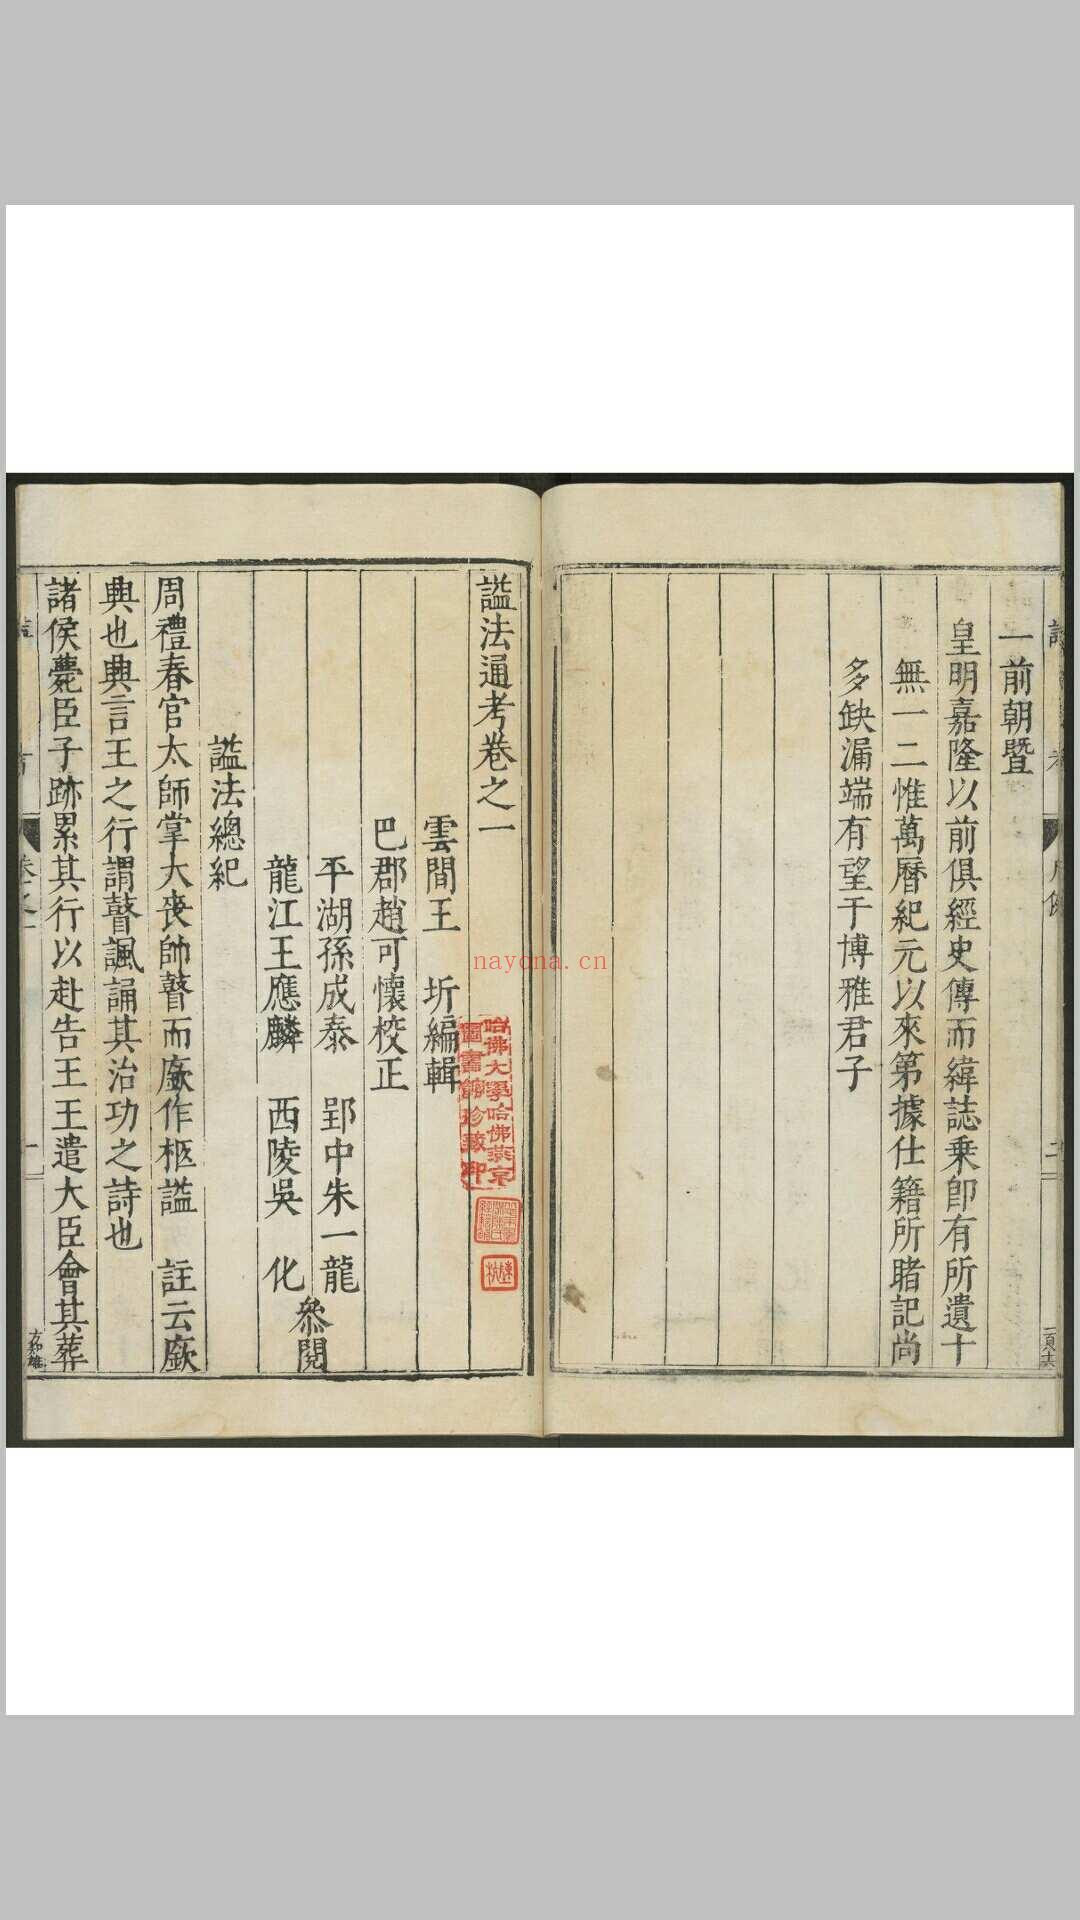 一前朝暨
皇明嘉隆以前俱經史傳而緯誌乗卽有所遺十
無一二惟萬曆紀元以來第據仕籍所睹記尚
多缺漏端有望于博雅君子
諡法通考卷之一
雲間王　圻編輯
巴郡趙可懷校正
平湖孫成泰　郢中朱一龍
龍江王應麟　西陵吳　化
叅閱
諡法總紀
周禮春官太師掌大喪帥瞽而廞作柩諡　註云廞
興也興言王之行謂瞽諷誦其治功之詩也
諸侯薨臣子跡累其行以赴告王王遣大臣會其葬
哈佛大學哈佛燕京
圖書館珍藏印
nayona.cn